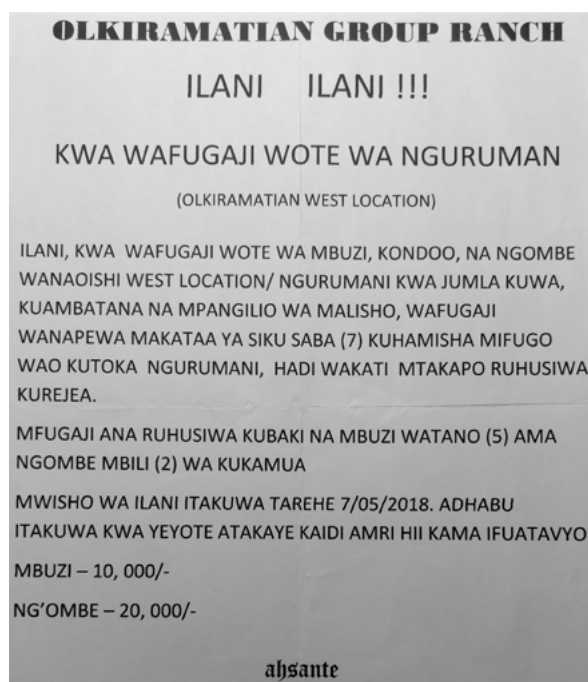 OLKIRAMATIAN GROUP RANCH
ILANI ILANI !!!
KWA WAFUGAJI WOTE WA NGURUMAN
(OLKIRAMATIAN WEST LOCATION)
ILANI, KWA WAFUGAJI WOTE WA MBUZI, KONDOO, NA NGOMBE
WANAOISHI WEST LOCATION/ NGURUMANI KWA JUMLA KUWA,
KUAMBATANA NA MPANGILIO WA MALISHO, WAFUGAJI
WANAPEWA MAKATAA YA SIKU SABA (7) KUHAMISHA MIFUGO
WAO KUTOKA NGURUMANI, HADI WAKATI MTAKAPO RUHUSIWA
KUREJEA.
MFUGAJI ANA RUHUSIWA KUBAKI NA MBUZI WATANO (5) AMA
NGOMBE MBILI (2) WA KUKAMUA
MWISHO WA ILANI ITAKUWA TAREHE 7/05/2018. ADHABU
ITAKUWA KWA YEYOTE ATAKAYE KAIDI AMRI HII KAMA IFUATAVYO
MBUZI – 10, 000/-
NG'OMBE – 20, 000/-
ahsante